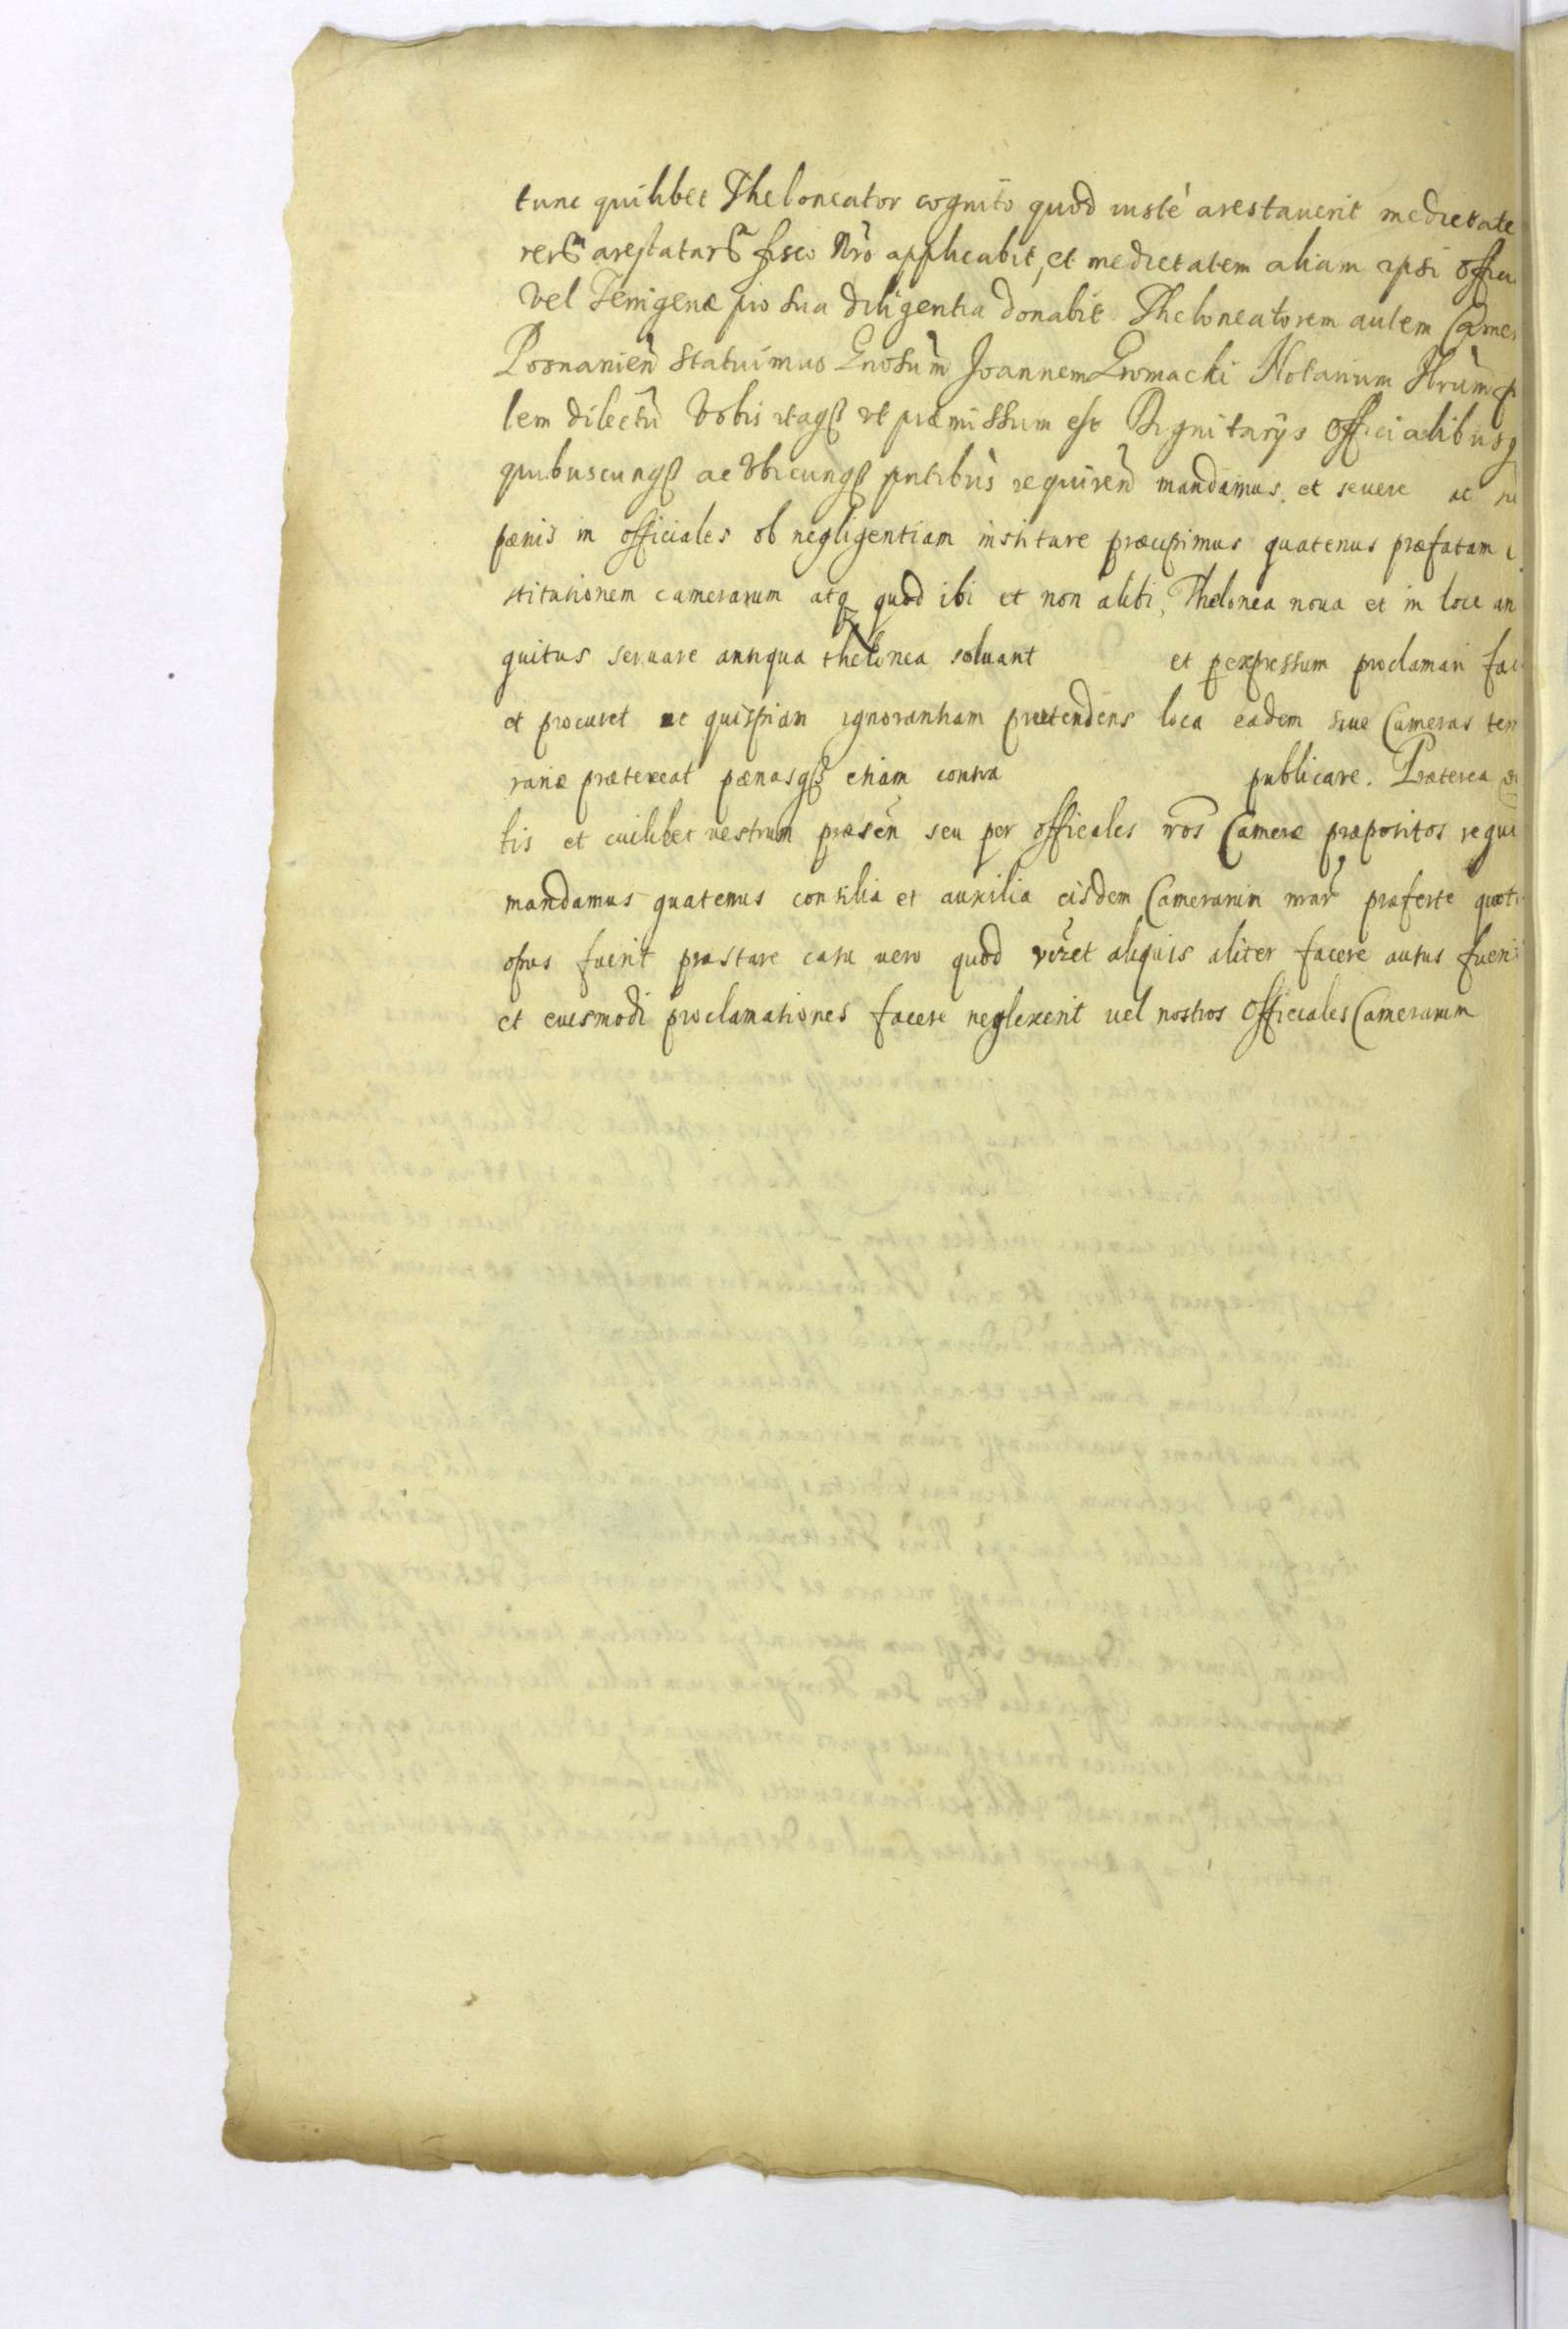 tunc quilibet Theloneator cognito quod iuste arestauerit medietate
rerũ arestatarũ fisco Nrõ applicabit, et medietatem aliam ipsi offici
Vel Terrigenæ pro sua diligentia donabit. Theloneatorem autem Camer
Posnanien̄ statuimus Gnosum̄ Joannem Gromacki Notarium Nrum̄
lem dilectũ Vobis itaqȝ vt præmissum est Dignitarijs Officialibusq
quibuscunqȝ ac Vbicunqȝ pntibus̄ requiren̄ mandamus. et seuere ac
pænis in officiales ob negligentiam institure præcipimus quatenus præfatam
stitutionem camerarum atq quod ibi et non alibi, Thelonea noua et in loce an
quitus seruare antiqua thelonea soluant et p expressum proclamari fac
et procuret ne quispian ignorantiam pretendens loca eadem siue Cameras tem
rariæ prætereat pænasqȝ etiam contra publicare. Præterea
tis et cuilibet vestrum præsen̄ seu per officeales nr̄os Cameræ præpositos requi
mandamus quatenus consilia et auxilia eisdem Camerarum nrar̄ præferte quot
opus fuerit præstare casu uero quod aliquis aliter facere autus fueri
et euesmodi proclamationes facere neglexerit uel nostros Officeales Camerarum